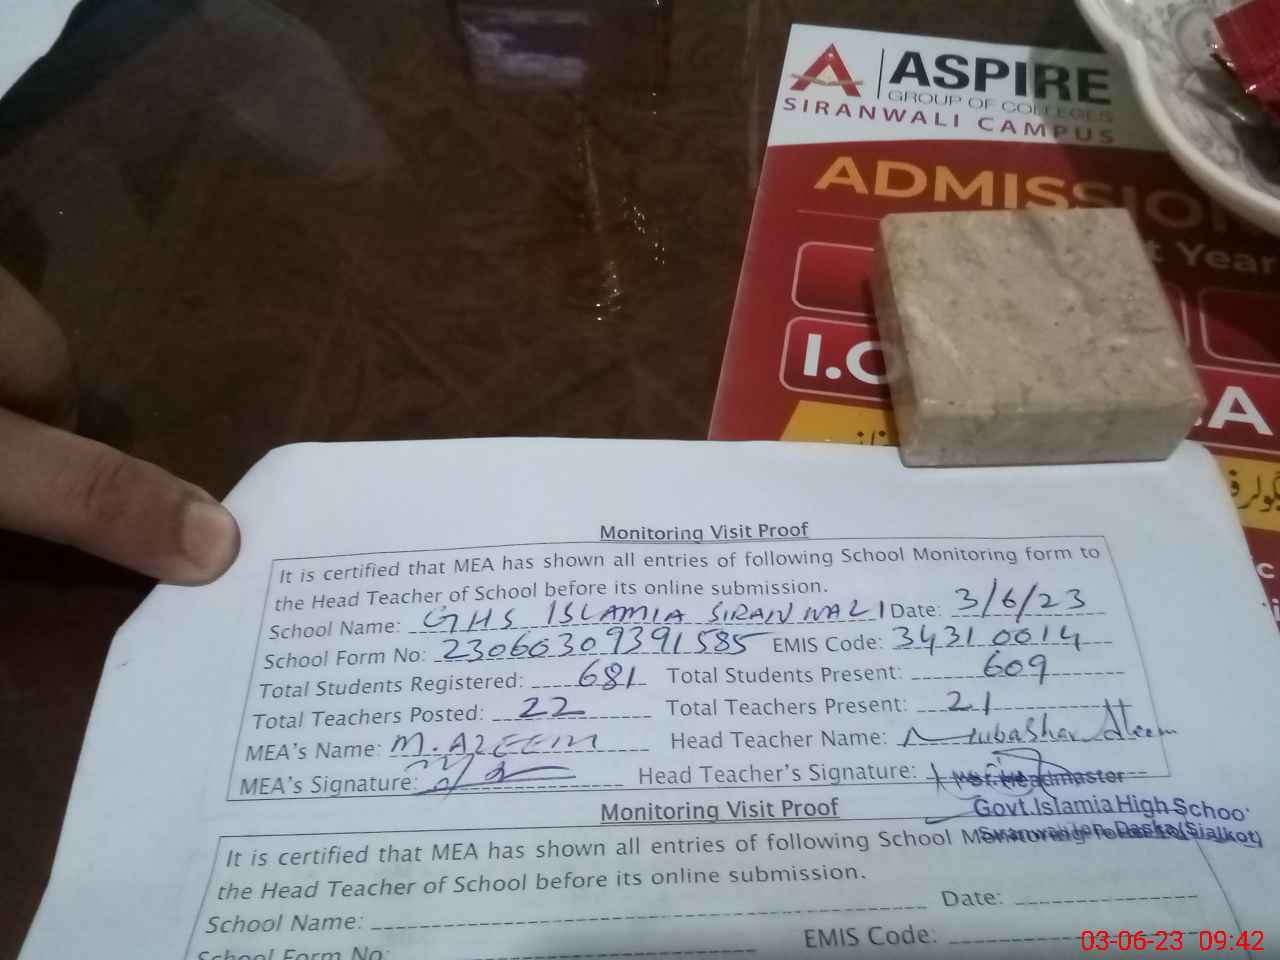 ASPIRE
GROUP OF COLLEGES
SIRANWALI CAMPUS
ADMISSION
t Year
I.C
.A
Monitoring Visit Proof
It is certified that MEA has shown all entries of following School Monitoring form to
the Head Teacher of School before its online submission.
School Name: GHS ISLAMIA SIRANWALI Date: 3/6/23
School Form No: 23060309391585 EMIS Code: 34310014
Total Students Registered: 681 Total Students Present: 609
Total Teachers Posted: 22 Total Teachers Present: 21
MEA's Name: M.AZEEM Head Teacher Name: Mubashar Aleem
MEA's Signature: Head Teacher's Signature:
Headmaster
Govt.Islamia High Schoo
Daska(Sialkot)
Monitoring Visit Proof
It is certified that MEA has shown all entries of following School Monitoring form to
the Head Teacher of School before its online submission.
School Name: Date:
School Form No: EMIS Code:
03-06-23 09:42